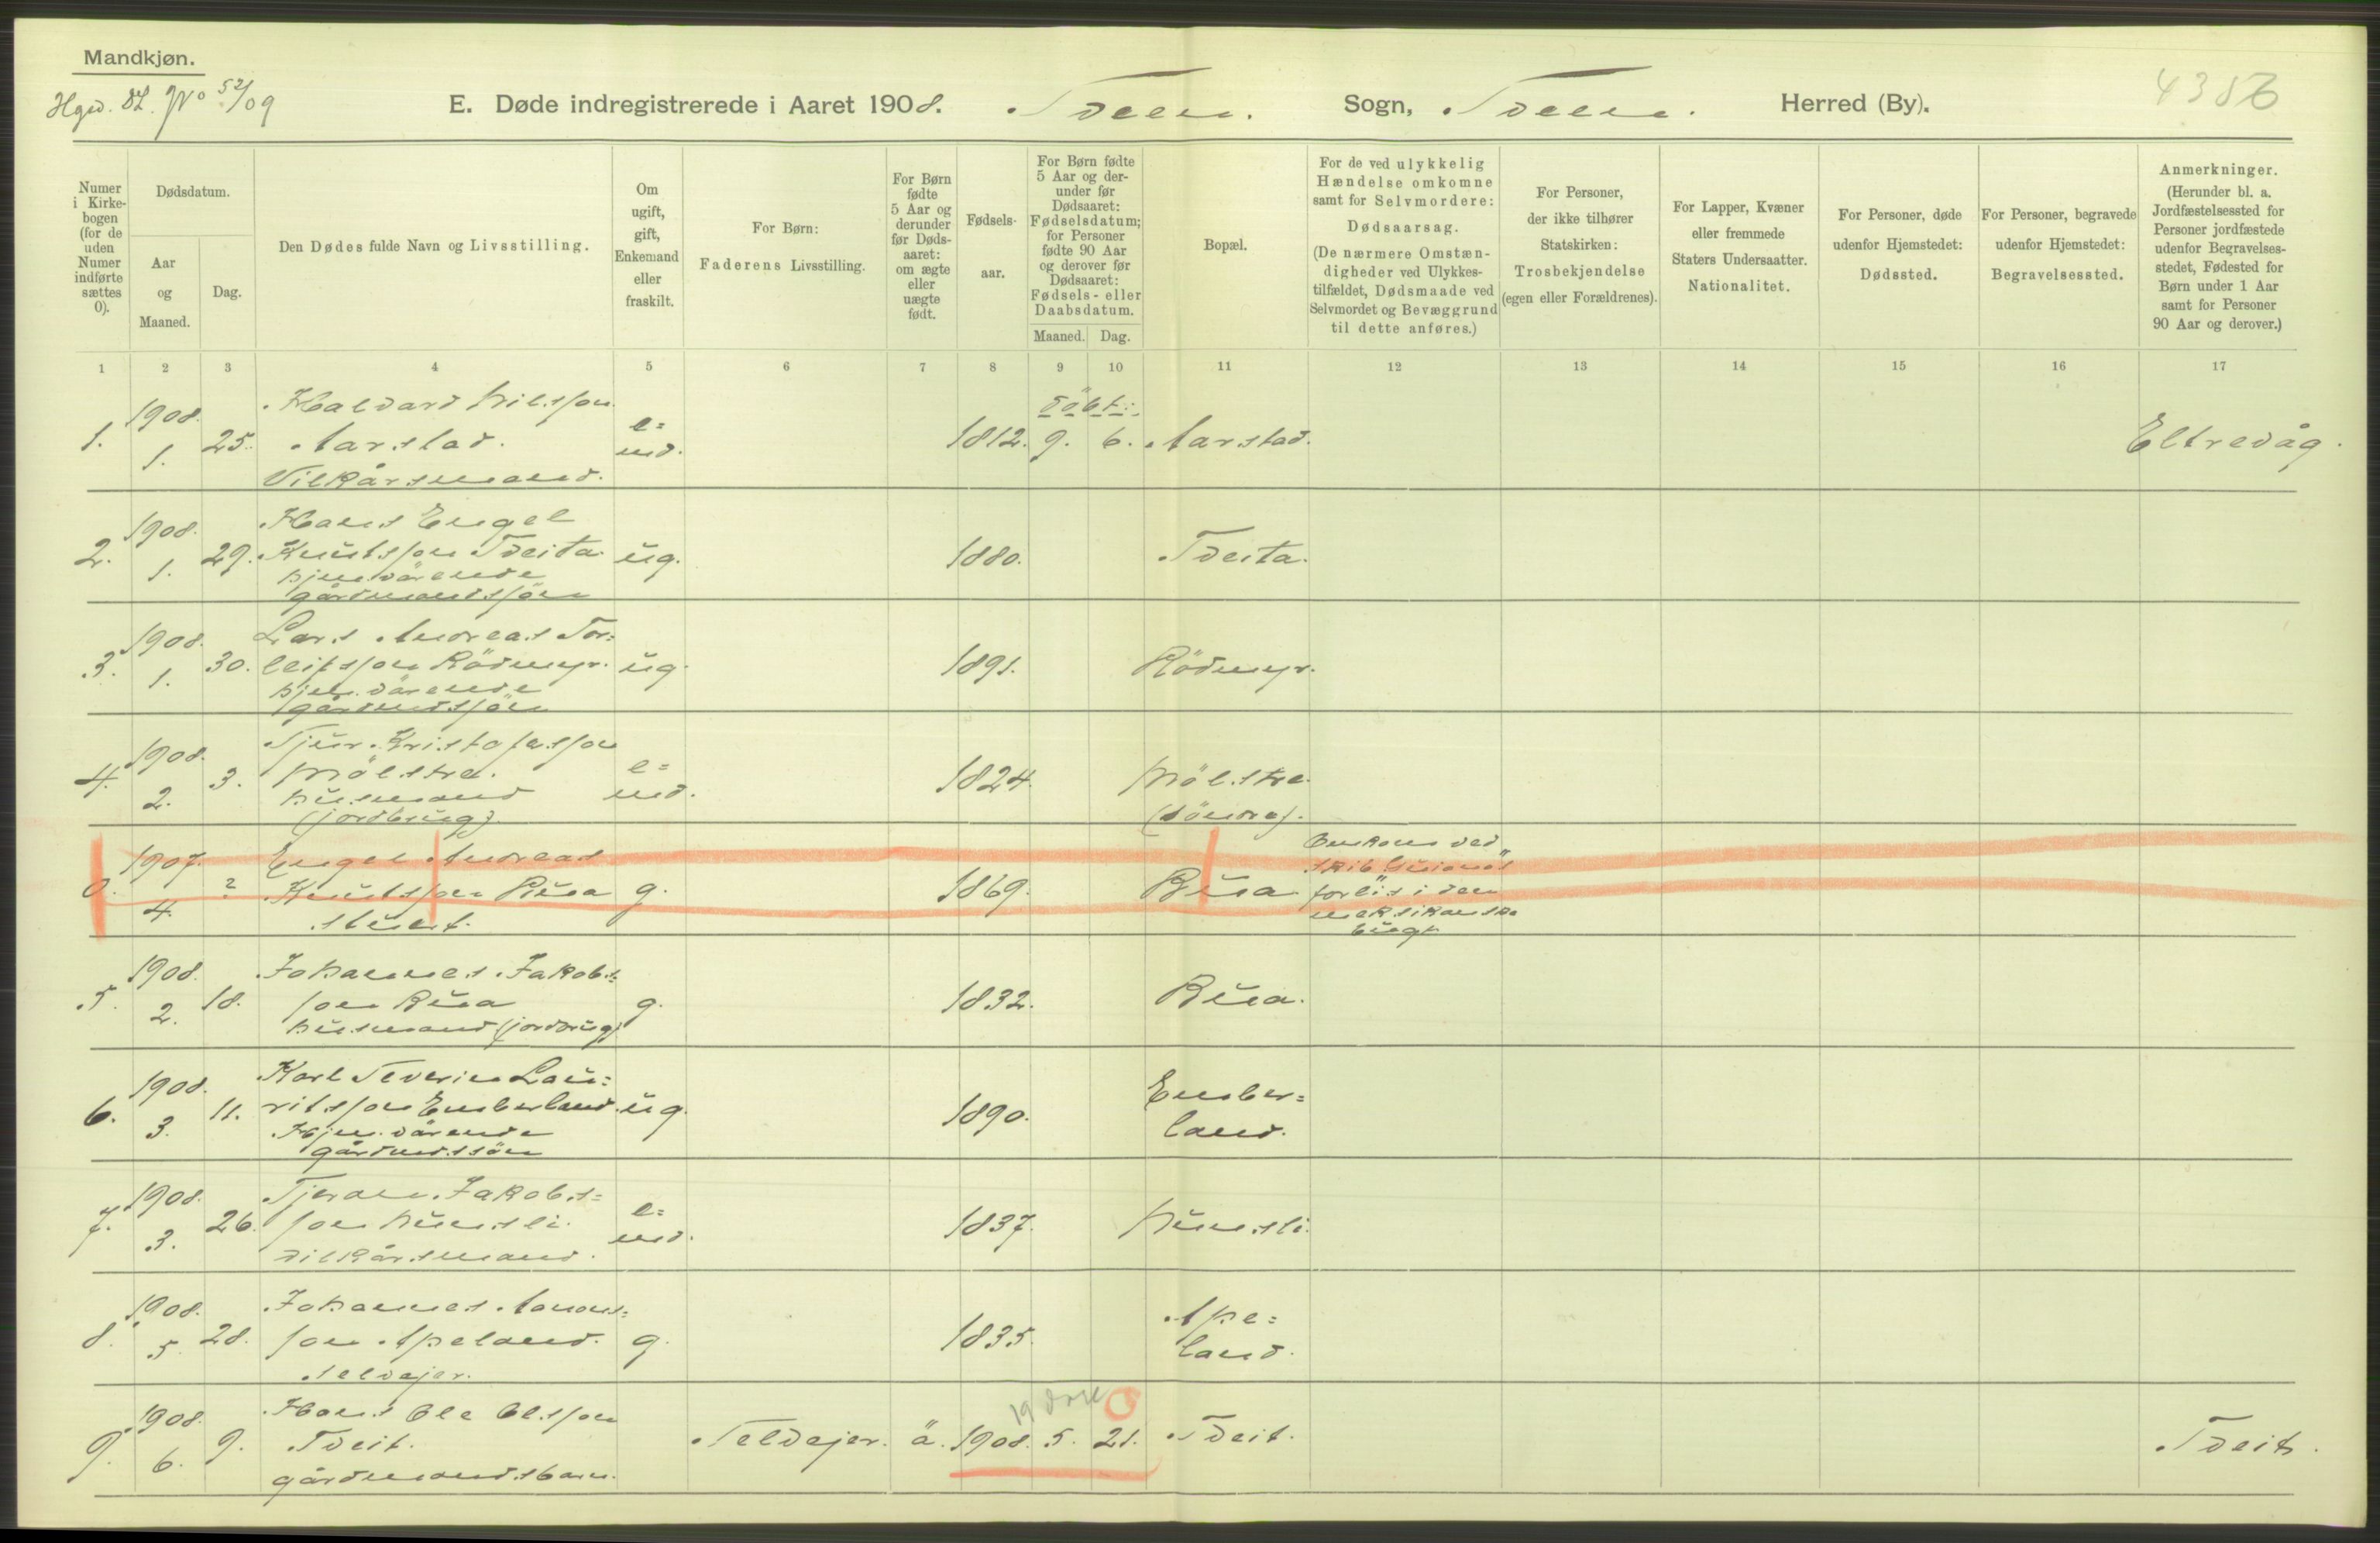 Mandkjøn.
No 52/09
E. Døde indregistrerede i Aaret 1908. Sveen. Sogn, Sveen. Herred (By).
Numer i Kirkebogen (for de uden Numer indførte sættes 0).
Dødsdatum.
Aar og Maaned.
Dag.
Den Dødes fulde Navn og Livsstilling.
Om ugift, gift, Enkemand eller fraskilt.
For Børn: Faderens Livsstilling.
For Børn fødte 5 Aar og derunder før Dødsaaret: om ægte eller uægte født.
Fødselsaar.
For Børn fødte 5 Aar og derunder før Dødsaaret: Fødselsdatum; for Personer fødte 90 Aar og derover før Dødsaaret: Fødsels- eller Daabsdatum.
Maaned. Dag.
Bopæl.
For de ved ulykkelig Hændelse omkomne samt for Selvmordere: Dødsaarsag. (De nærmere Omstændigheder ved Ulykkestilfældet, Dødsmaade ved Selvmordet og Bevæggrund til dette anføres.)
For Personer, der ikke tilhører Statskirken: Trosbekjendelse (egen eller Forældrenes).
For Lapper, Kvæner eller fremmede Staters Undersaatter. Nationalitet.
For Personer, døde udenfor Hjemstedet: Dødssted.
For Personer, begravede udenfor Hjemstedet: Begravelsessted.
Anmerkninger. (Herunder bl. a. Jordfæstelsessted for Personer jordfæstede udenfor Begravelsesstedet, Fødested for Børn under 1 Aar samt for Personer 90 Aar og derover.)
1 2 3 4 5 6 7 8 9 10 11 12 13 14 15 16 17
Haldvard Nilsson
döbt:
1. 1908. 1. 25. Aarstad. e=md. 1812. 9. 6. Aarstad. Eltrevåg.
Vilkårsmand.
Hans Engel
2. 1908. 1. 29. Knutsson Sveita ug. 1880. Sveita.
hjemværende
gårdmandssön
Lars Andreas Tor=
3. 1908. 1. 30. leifsson Rödmyr. ug. 1891. Rödmyr.
hjem.værende
gårdmdssön
Sjur Kristofersson
4. 1908. 2. 3. Mölstre. e=md. 1824. Mölstre.
husmand
(jordbrug) (söndre).
Engel Andreas Omkom ved
0. 1907. 4. ? Knutsson Bua g. 1869. Bua skib
stuert. forlis i den
meksikanske
bugt
Johannes Jakobs=
5. 1908. 2. 18. son Bua g. 1832. Bua.
husmand (jordbrug)
Karl Severin Lau=
6. 1908. 3. 11. ritsson Emberland. ug. 1890. Ember=
Hjem.værende land.
gårdmdssön
7. 1908. 3. 26. Jakobs=
son Hunsli. e=md. 1837. Hunsli.
vilkårsmand.
Johannes Amons=
8. 1908. 5. 28. son Apeland. g. 1835. Ape=
Selvejer. land.
Hans Ole Olsson
9. 1908. 6. 9. Tveit. Selvejer. ä. 1908. 5. 21. Tveit. Tveit.
gårdmandsbarn.